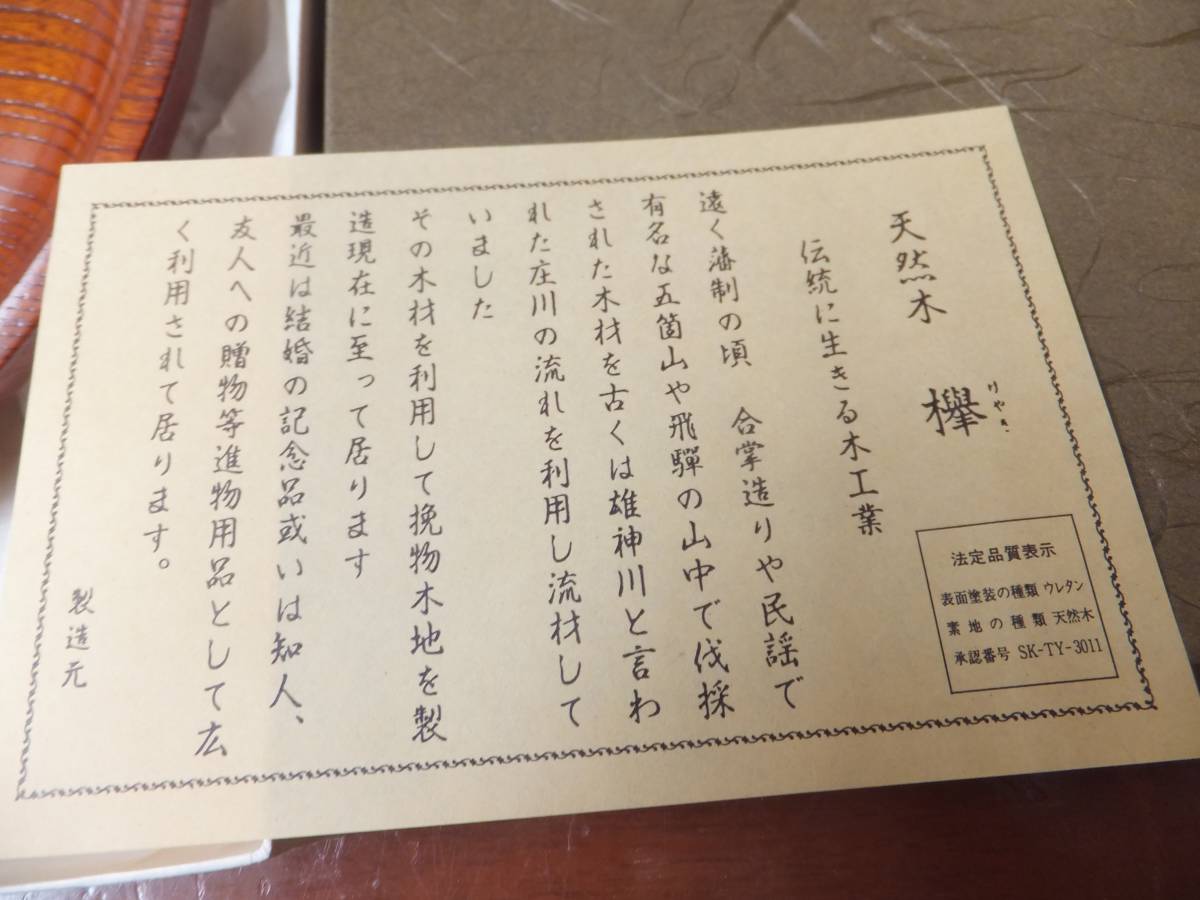 天然木 欅
けやき
伝統に生きる木工業
遠く藩制の頃 合掌造りや民謡で
有名な五箇山や飛驒の山中で伐採
された木材を古くは雄神川と言わ
れた庄川の流れを利用し流材して
いました
その木材を利用して挽物木地を製
造現在に至って居ります
最近は結婚の記念品或いは知人、
友人への贈物等進物用品として広
く利用されて居ります。
製造元
法定品質表示
表面塗装の種類 ウレタン
素地の種類 天然木
承認番号 SK-TY-3011